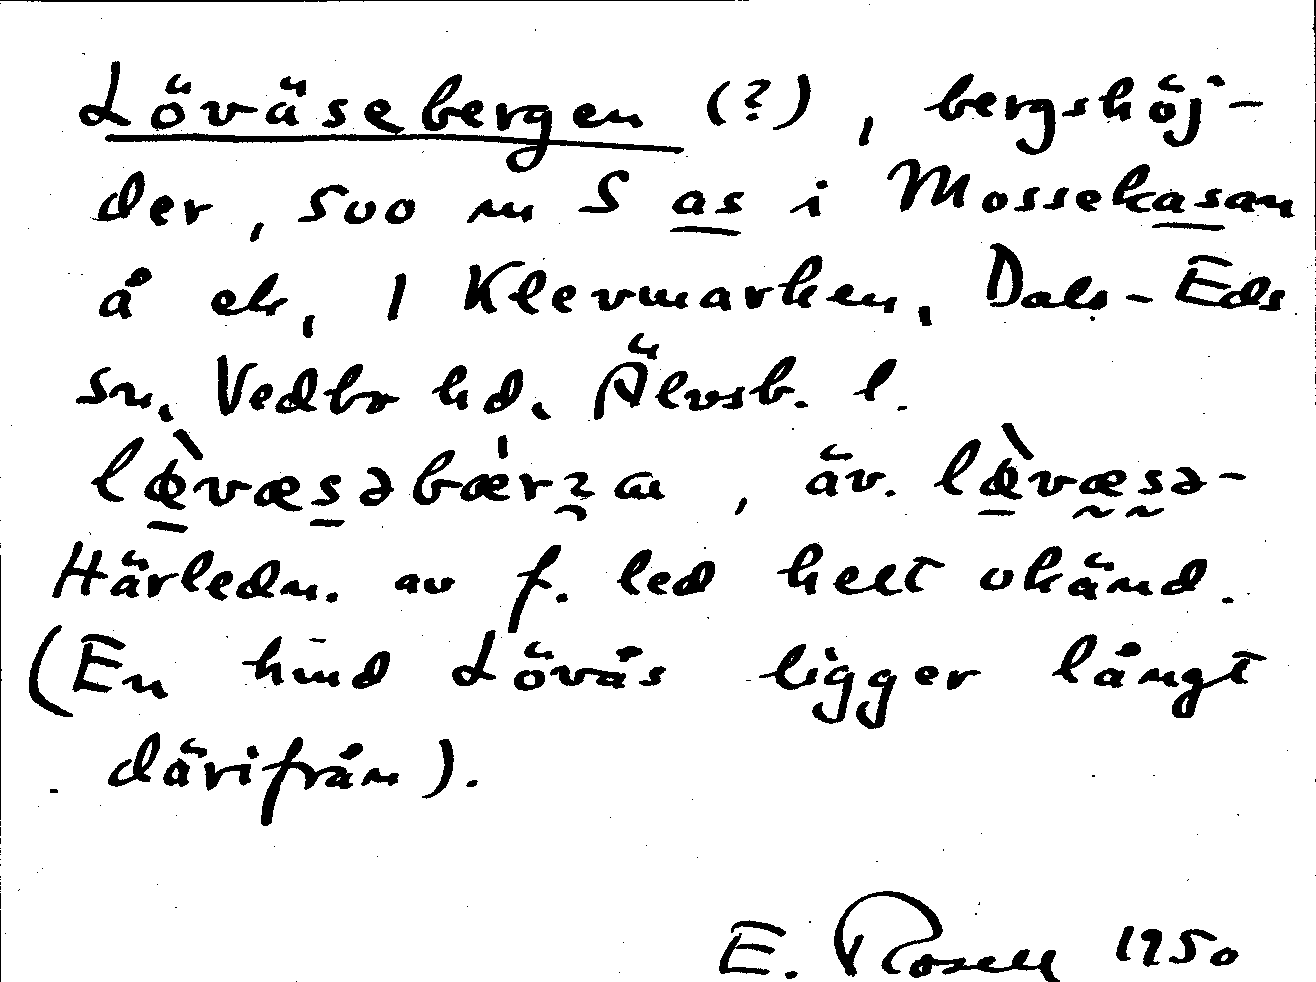 Löväsebergen (?), bergshöj-
der, 500 m S as i Mossekasan
å ek, 1 Klevmarken, Dals-Eds
sn, Vedbo hd, Älvsb. l.
äv.
Härledn. av f. led helt okänd.
(En hmd Lövås ligger långt
därifrån).
E. Rosell 1950